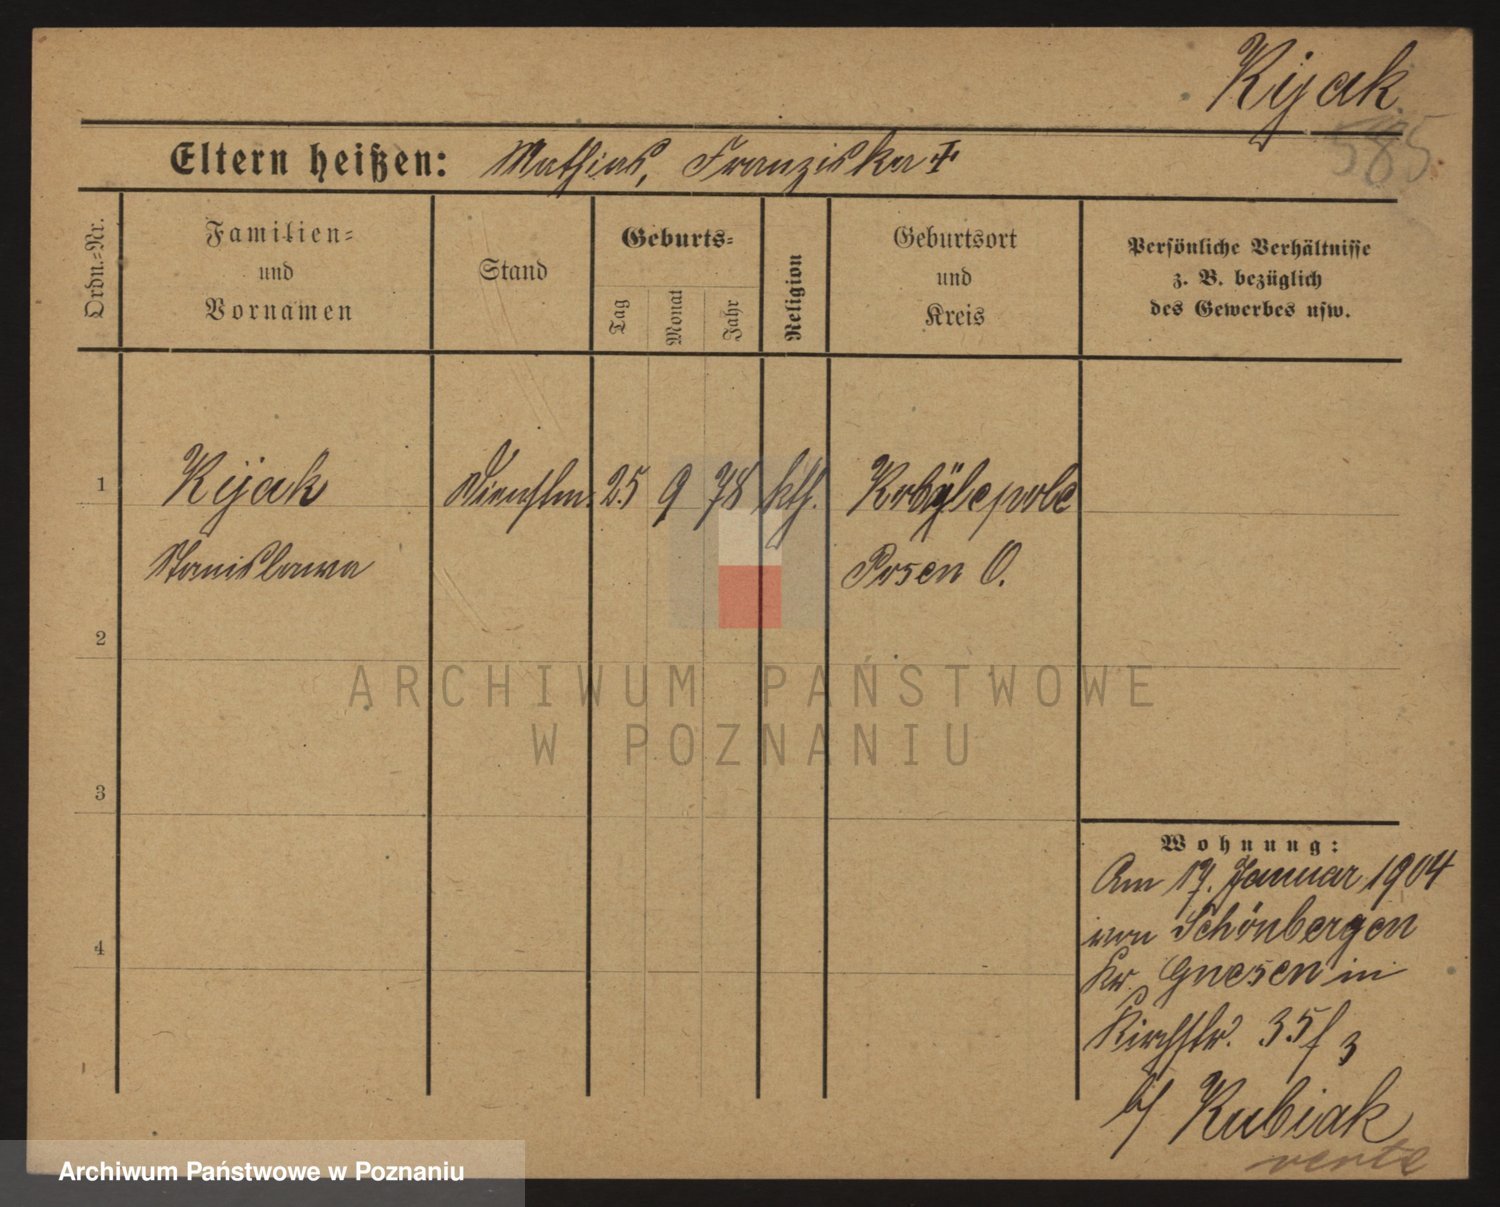 Kijak
585.
Eltern heißen: Mathias, Franziska †
Ordn.-Nr.
Familien-
und
Vornamen
Stand
Geburts-
Tag
Monat
Jahr
Religion
Geburtsort
und
Kreis
Persönliche Verhältnisse
z. B. bezüglich
des Gewerbes usw.
1 Kijak Dienstm. 25 9 78 kth. Kobylepole
Stanislawa Posen O.
2
3
4
Wohnung:
Am 17. Januar 1904
von Schönbergen
Kr. Gnesen in
Kirchstr. 35 f 3
b/ Kubiak
verte
ARCHIWUM PAŃSTWOWE
W POZNANIU
Archiwum Państwowe w Poznaniu